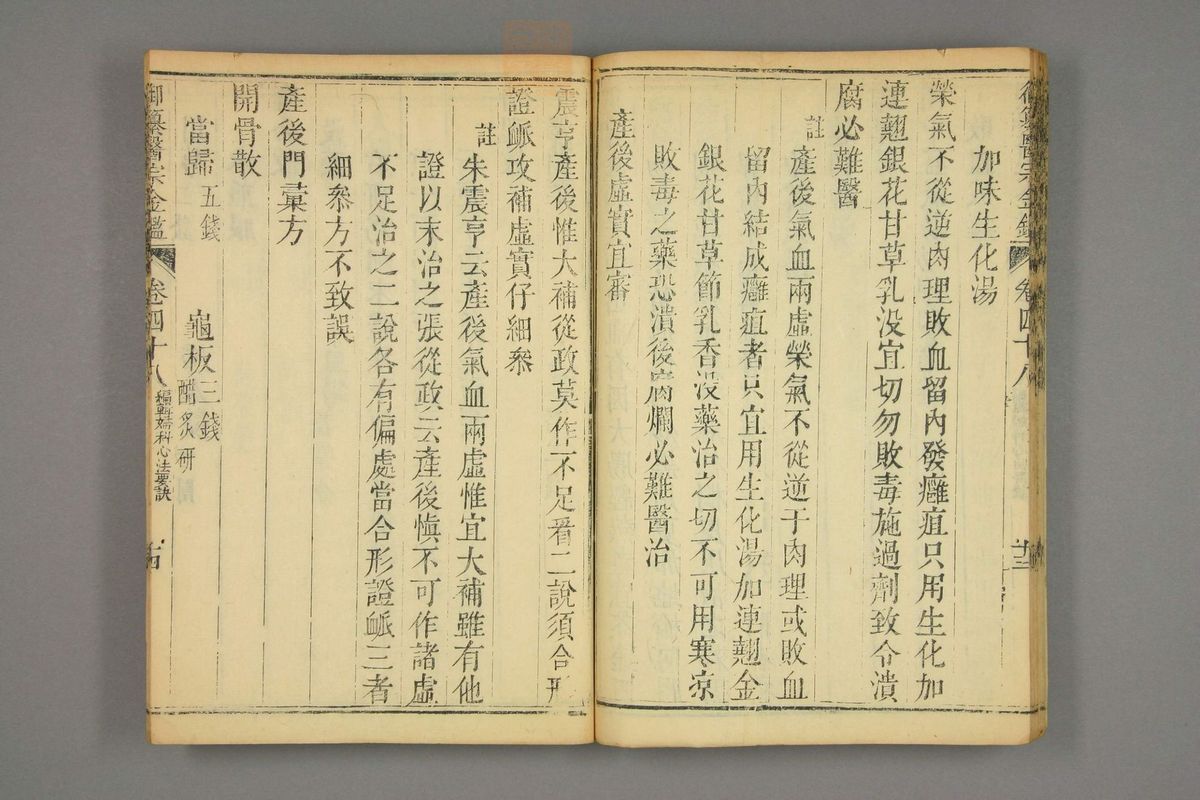 御纂醫宗金鑑 卷四十八 十三
加味生化湯
榮氣不從逆肉理敗血留內發癰疽只用生化加
連翹銀花甘草乳没宜切勿敗毒施過劑致令潰
腐必難醫
註產後氣血兩虛榮氣不從逆于肉理或敗血
留內結成癰疽者只宜用生化湯加連翹金
銀花甘草節乳香没藥治之切不可用寒涼
敗毒之藥恐潰後腐爛必難醫治
產後虛實宜審
震亨產後惟大補從政莫作不足看二說須合形
證脈攻補虛實仔細叅
註朱震亨云產後氣血兩虛惟宜大補雖有他
證以末治之張從政云產後慎不可作諸虛
不足治之二說各有偏處當合形證脈三者
細叅方不致誤
產後門彙方
開骨散
當歸五錢 龜板三錢醋炙研
御纂醫宗金鑑 卷四十八 編輯婦科心法要訣 十四